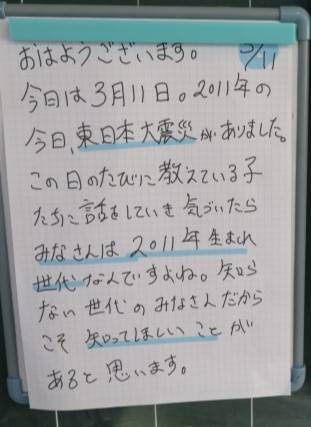 おはようございます。 3/11
今日は3月11日。2011年の
今日、東日本大震災がありました。
この日のたびに教えている子
たちに話をしていき気づいたら
みなさんは2011年生まれ
世代なんですよね。知ら
ない世代のみなさんだから
こそ知ってほしいことが
あると思います。